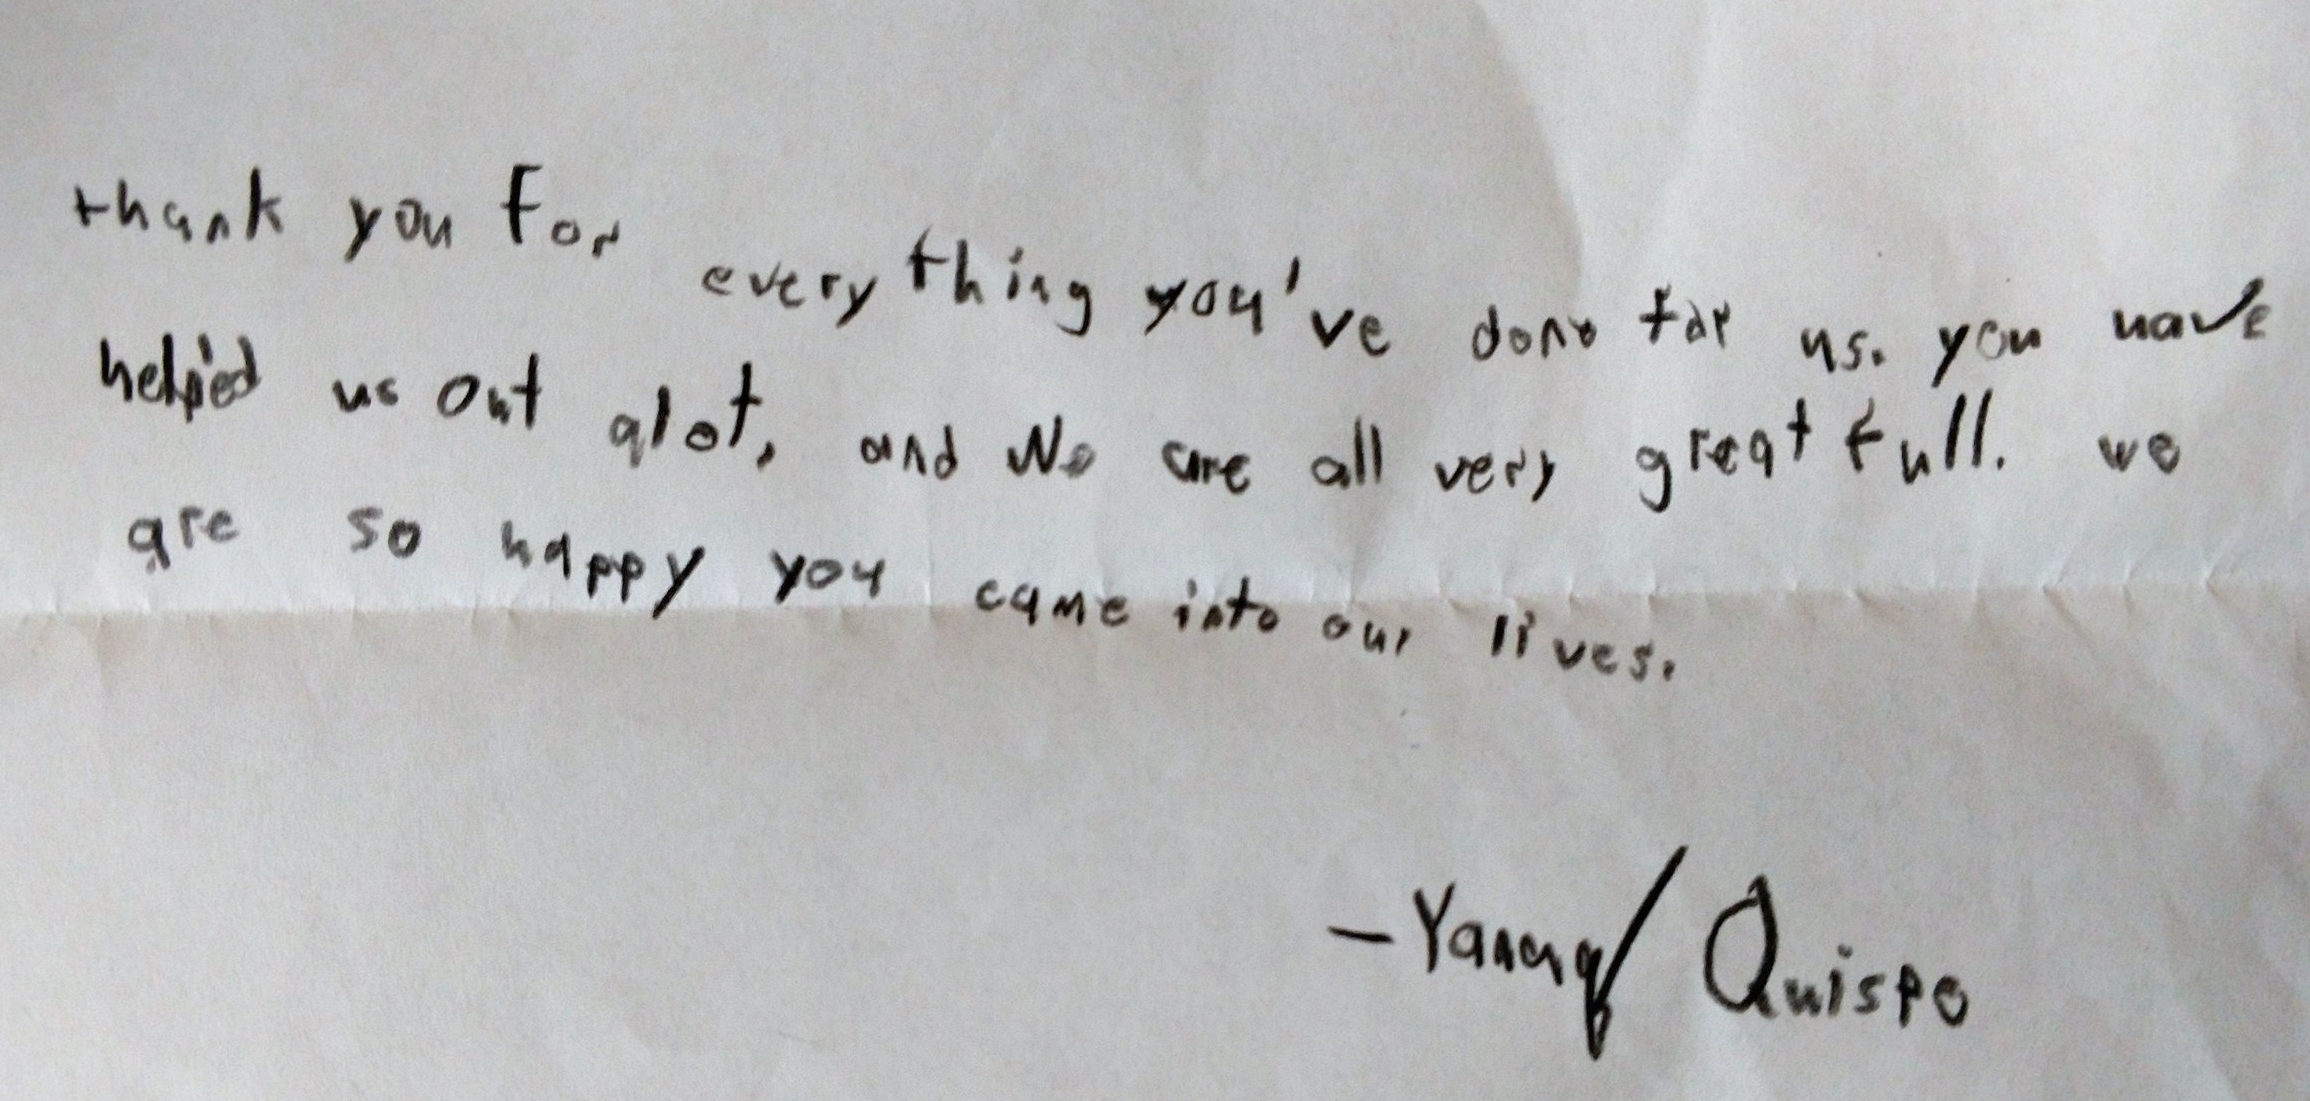 thank you for everything you've done for us. you have
helped us out alot, and we are all very greatfull. we
are so happy you came into our lives.
- Quispe